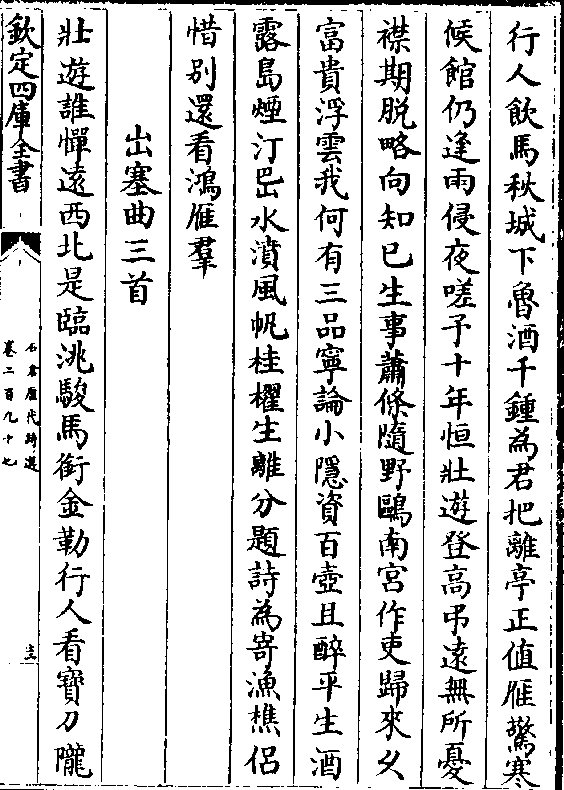 行人飲馬秋城下魯酒千鍾為君把離亭正值雁驚寒
候館仍逢雨侵夜嗟予十年恒壯遊登高弔遠無所憂
襟期脱略向知已生事蕭條隨野鷗南宫作吏歸來乆
富貴浮雲我何有三品寧論小隱資百壺且醉平生酒
露島煙汀岊水濆風帆桂櫂生離分題詩為寄漁樵侣
惜别還看鴻雁羣
出塞曲三首
壯遊誰憚遠西北是臨洮駿馬銜金勒行人看寳刀隴
欽定四庫全書
石倉歴代詩選
卷二百九十七